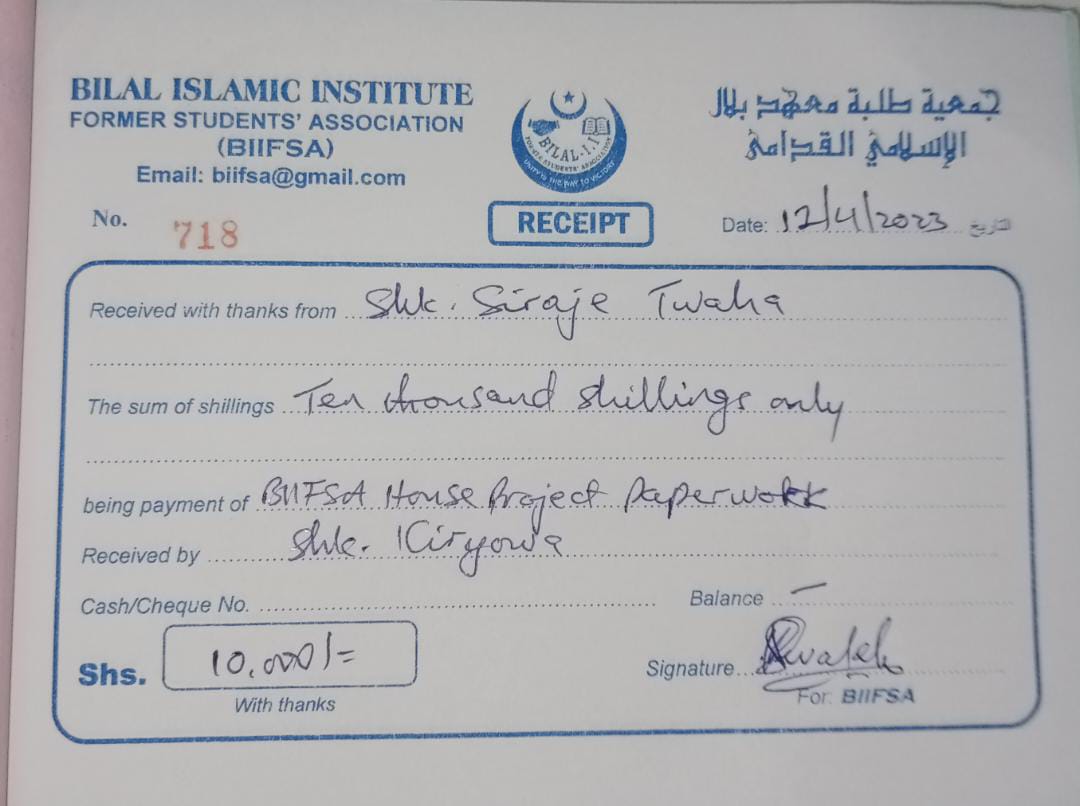 BILAL ISLAMIC INSTITUTE
FORMER STUDENTS' ASSOCIATION
(BIIFSA)
Email: biifsa@gmail.com
BILAL-I.I
FORMER STUDENTS' ASSOCIATION
UNITY IS THE WAY TO VICTORY
جمعية طلبة معهد بلال
الإسلامي القدامى
No. 718
RECEIPT
Date: 12/4/2023 التاريخ
Received with thanks from Shk. Siraje Twaha
The sum of shillings Ten thousand shillings only
being payment of BIIFSA House Project Paperwork
Received by Shk. Kiryowa
Cash/Cheque No. Balance –
Shs. 10,000/= Signature
With thanks For: BIIFSA